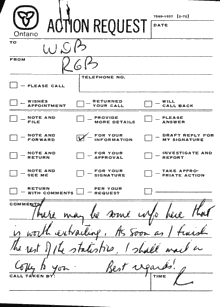 Ontario
ACTION REQUEST
7540-1037 (2-75)
DATE
TO
WSB
FROM
RGB
TELEPHONE NO.
PLEASE CALL
WISHES APPOINTMENT
RETURNED YOUR CALL
WILL CALL BACK
NOTE AND FILE
PROVIDE MORE DETAILS
PLEASE ANSWER
NOTE AND FORWARD
FOR YOUR INFORMATION
DRAFT REPLY FOR MY SIGNATURE
NOTE AND RETURN
FOR YOUR APPROVAL
INVESTIGATE AND REPORT
NOTE AND SEE ME
FOR YOUR SIGNATURE
TAKE APPROPRIATE ACTION
RETURN WITH COMMENTS
PER YOUR REQUEST
COMMENTS
There may be some info here that
is worth extracting. As soon as I finish
the rest of the statistics, I shall send a
copy to you. Best regards!
CALL TAKEN BY
TIME
R